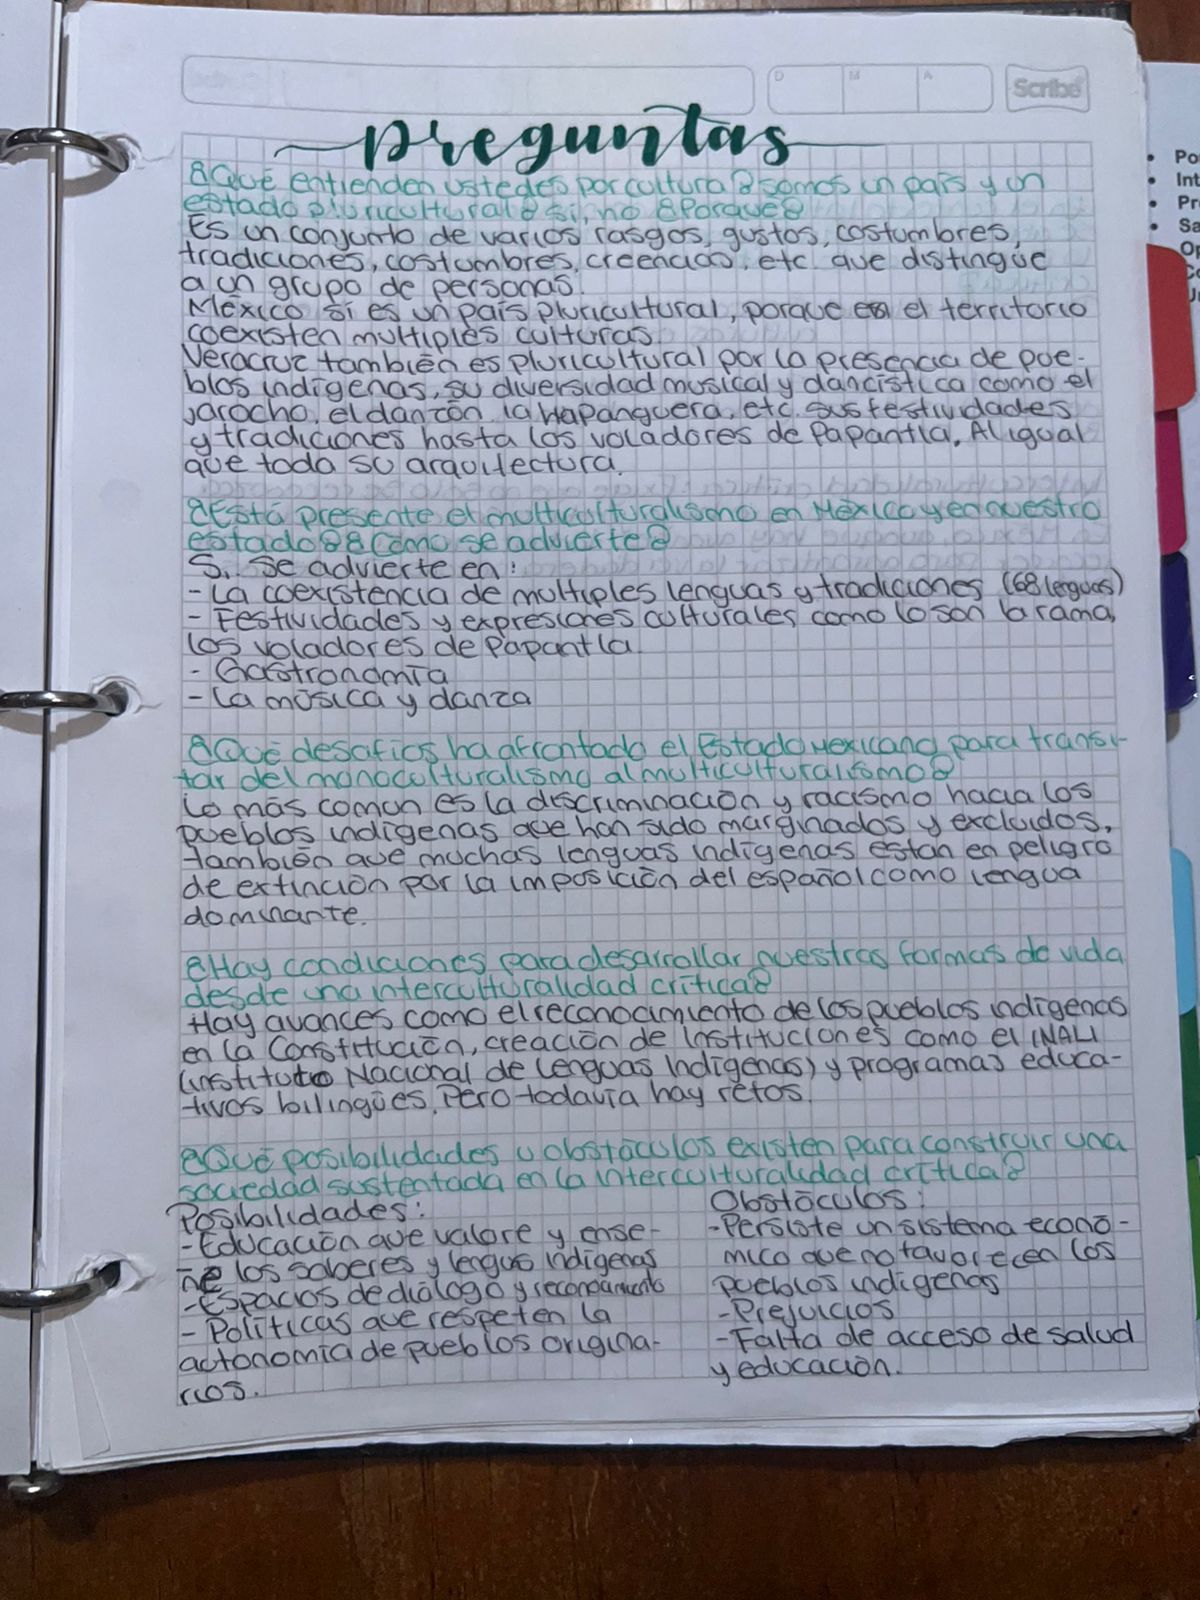 D M A Scribe
Preguntas
¿Qué entienden ustedes por cultura? ¿somos un país y un
estado pluricultural? si, no ¿Porque?
Es un conjunto de varios rasgos, gustos, costumbres,
tradiciones, costumbres, creencias, etc. que distingue
a un grupo de personas.
México sí es un país pluricultural, porque en el territorio
coexisten multiples culturas.
Veracruz también es pluricultural por la presencia de pue-
blos indígenas, su diversidad musical y dancística como el
jarocho, el danzón, la Hapanguera, etc. sus festividades
y tradiciones hasta los voladores de Papantla. Al igual
que toda su arquitectura.
¿Está presente el multiculturalismo en México y en nuestro
estado? ¿Cómo se advierte?
Si. Se advierte en:
- La coexistencia de multiples lenguas y tradiciones (68 lenguas)
- Festividades y expresiones culturales como lo son la rama,
los voladores de Papantla.
- Gastronomía
- La música y danza
¿Qué desafíos ha afrontado el Estado Mexicano para transi-
tar del monoculturalismo al multiculturalismo?
Lo más común es la discriminación y racismo hacia los
pueblos indígenas que han sido marginados y excluidos,
también que muchas lenguas indígenas estan en peligro
de extinción por la imposición del español como lengua
dominante.
¿Hay condiciones para desarrollar nuestras formas de vida
desde una interculturalidad crítica?
Hay avances como el reconocimiento de los pueblos indígenas
en la Constitución, creación de Instituciones como el INALI
(instituto Nacional de Lenguas Indígenas) y programas educa-
tivos bilingües, Pero todavía hay retos.
¿Qué posibilidades u obstáculos existen para construir una
sociedad sustentada en la interculturalidad crítica?
Posibilidades:
- Educación que valore y ense-
ñe los saberes y lenguas indígenas
- Espacios de diálogo y reconocimiento
- Políticas que respeten la
autonomía de pueblos origina-
rios.
Obstáculos:
- Persiste un sistema econó-
mico que no favorecen los
pueblos indígenas
- Prejuicios
- Falta de acceso de salud
y educación.
Po
Int
Pr
Sa